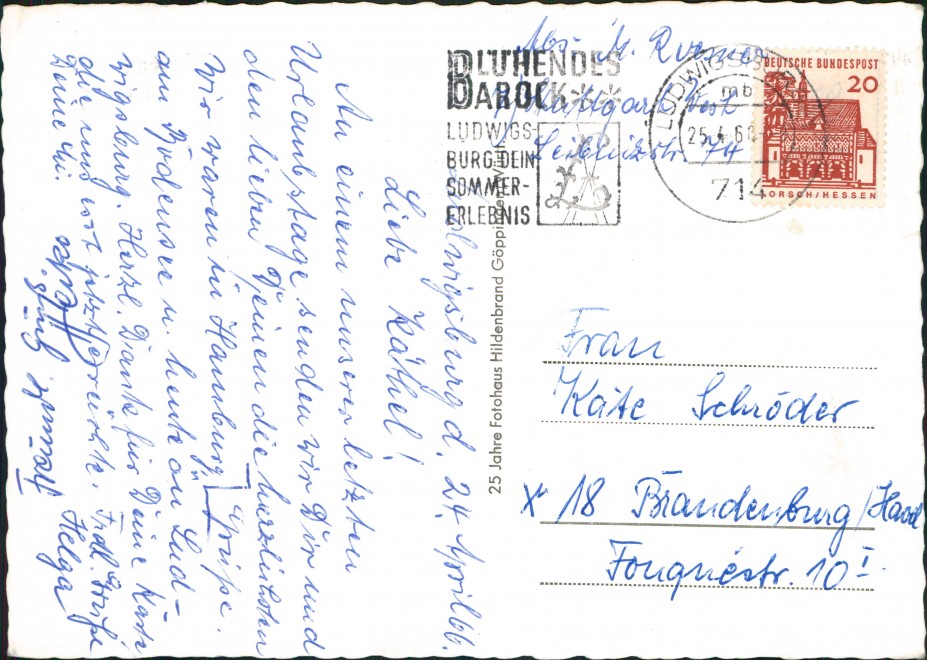 Ludwigsburg d. 24. April 66.
Liebe Käthe!
An einem unserer letzten
Urlaubstage senden wir Dir und
den lieben Deinen die herzlichsten
Grüße.
Wir waren in Hamburg,
am Bodensee u. heute in Lud-
wigsburg. Herzl. Dank für Deine Karte
die uns erst jetzt erreichte. Frdl. Grüße
Deine Helga
BLÜHENDES
BAROCK
LUDWIGS-
BURG DEIN
SOMMER-
ERLEBNIS
LUDWIGSBURG
mb
25.4.66
714
DEUTSCHE BUNDESPOST
20
LORSCH/HESSEN
Abs.
Stuttgart West
74
25 Jahre Fotohaus Hildenbrand Göppingen
Frau
Käte Schröder
X 18 Brandenburg/Havel
Fouquéstr. 10 I.